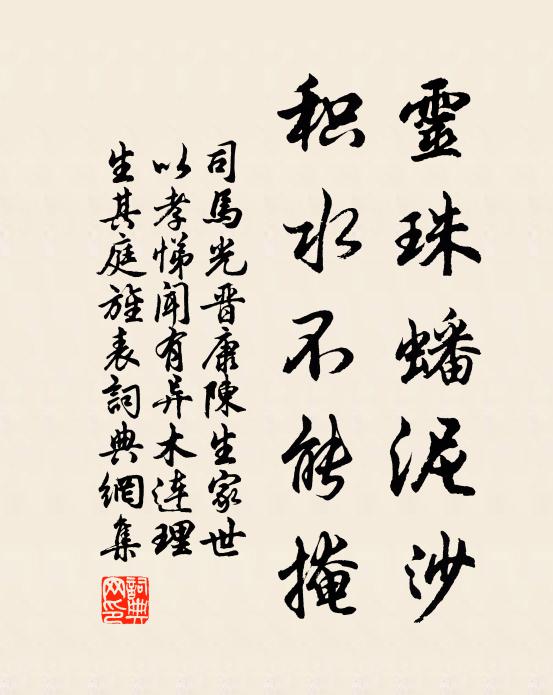 靈珠蟠泥沙
积水不能掩
司馬光晋康陳生家世
以孝悌闻有异木连理
生其庭旌表詞典網集
詞典網印